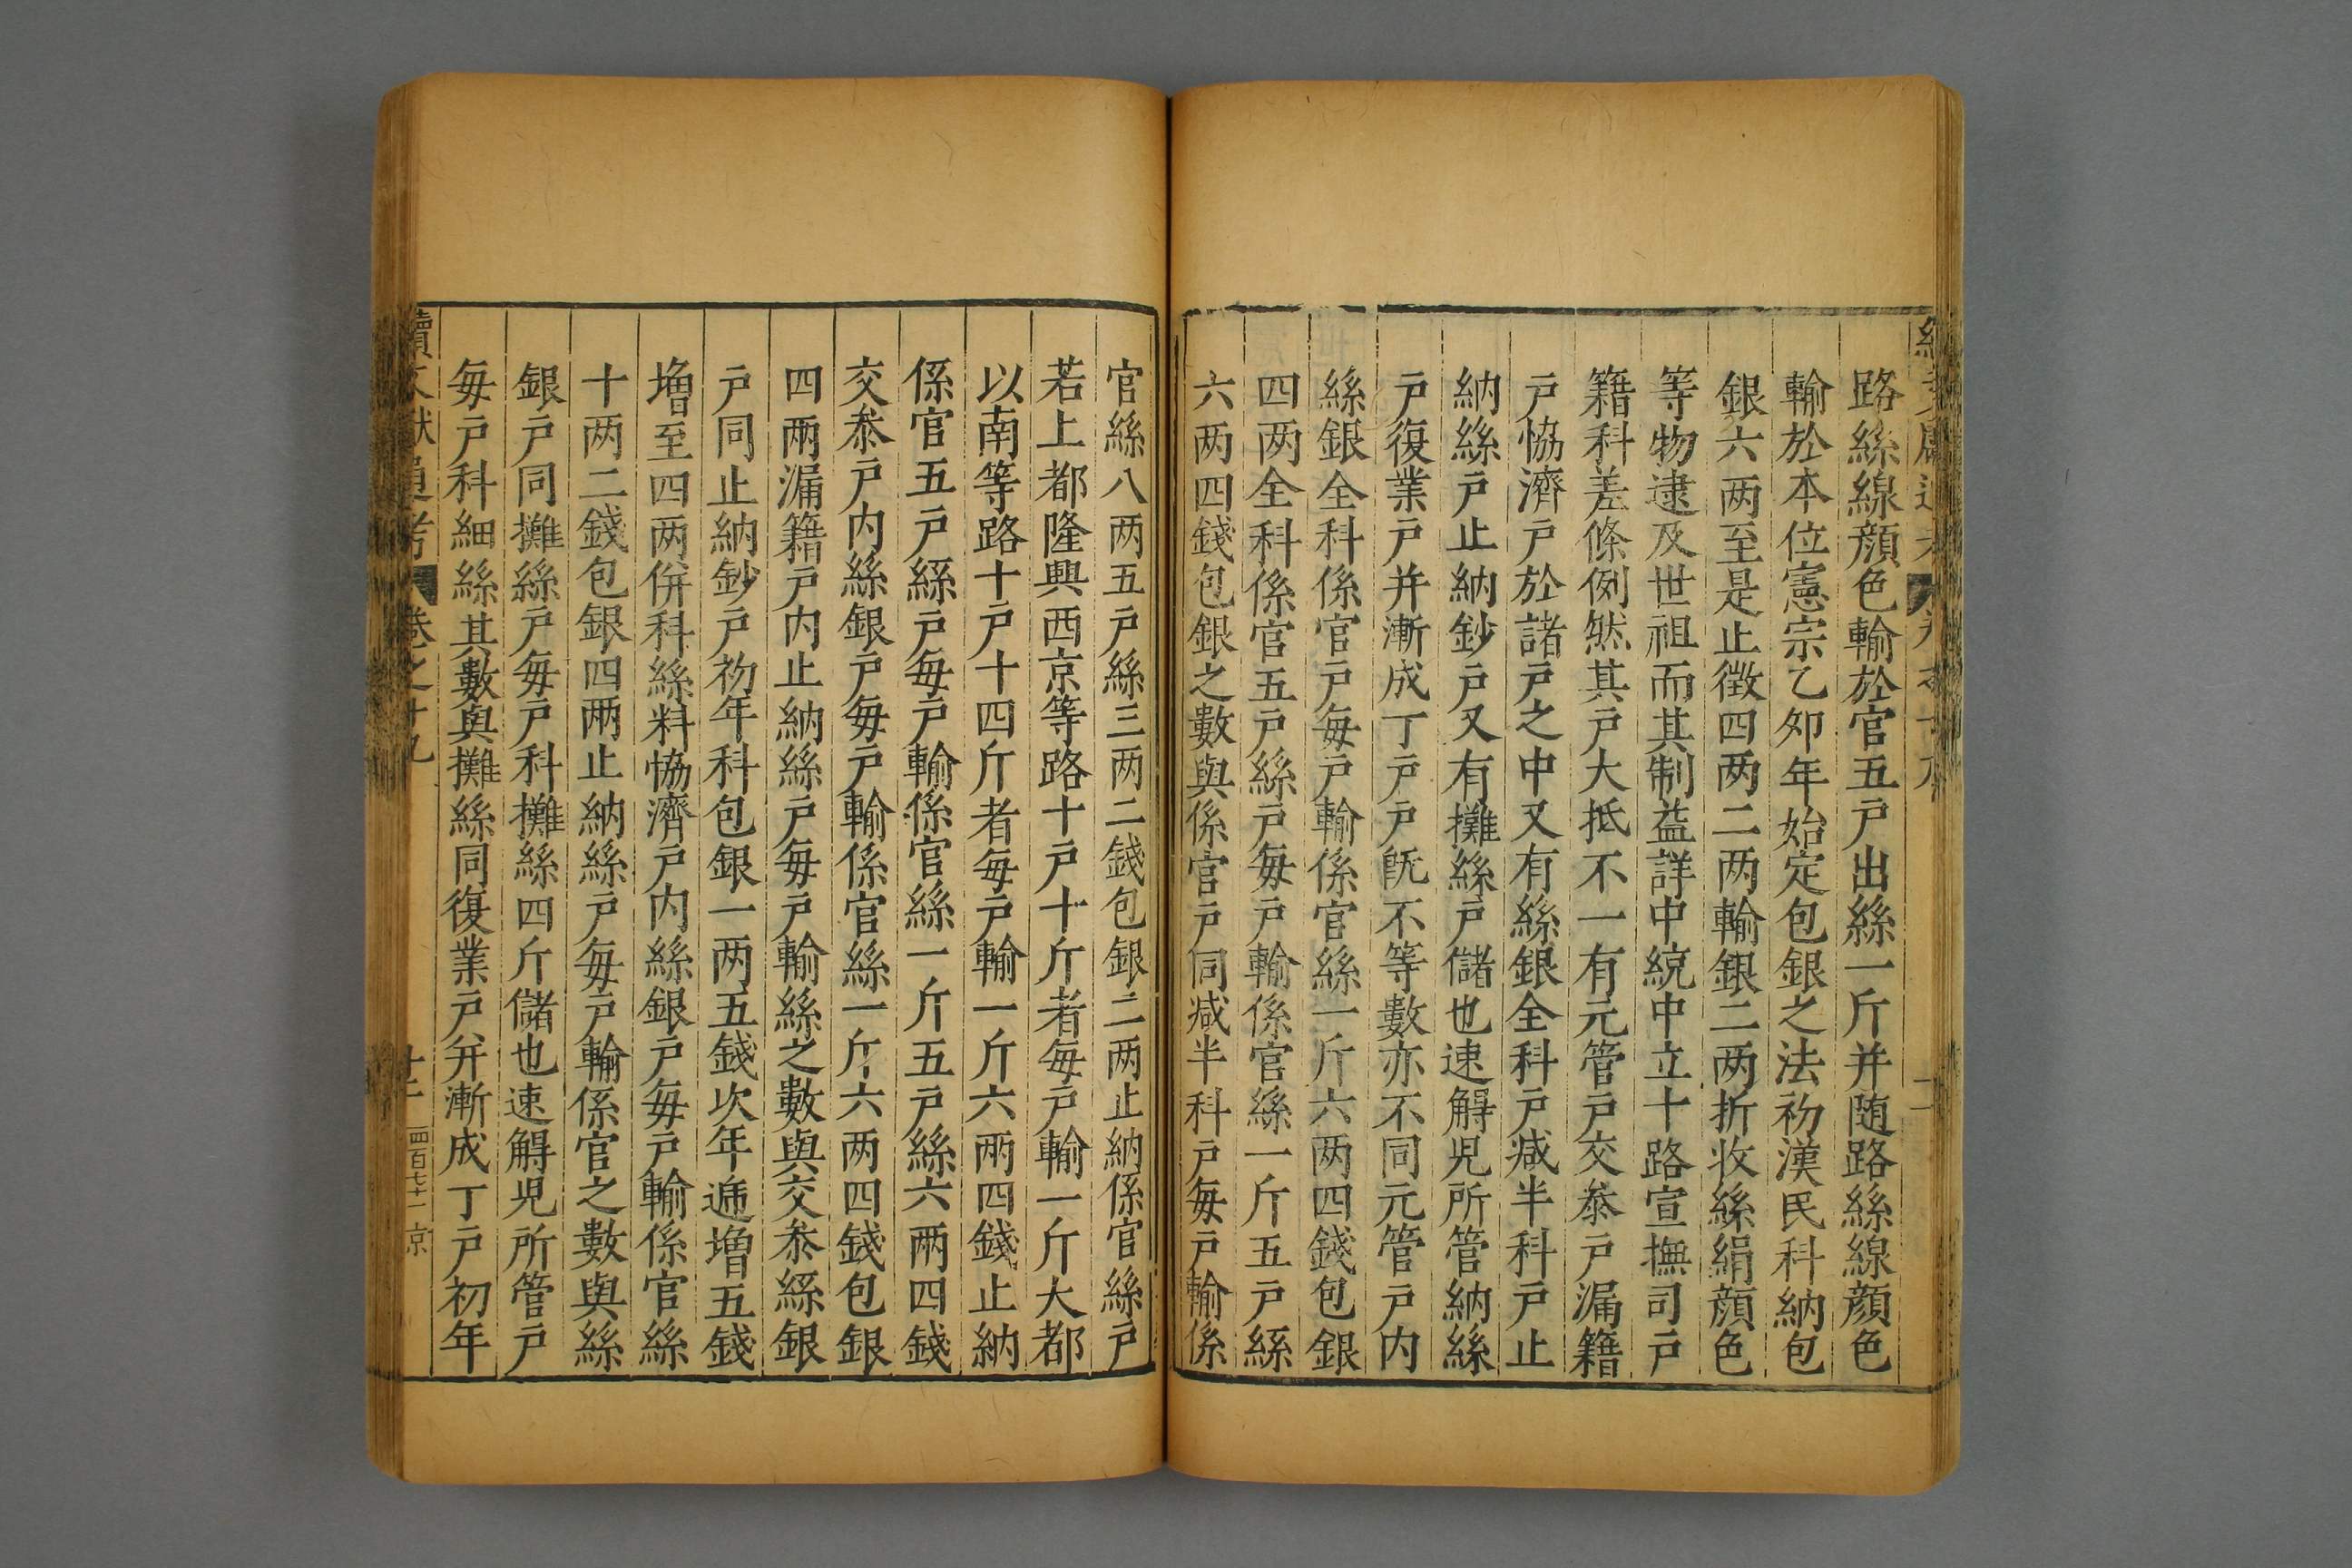 路絲線顔色輸於官五戸出絲一斤并随路絲線顔色
輸於本位憲宗乙夘年始定包銀之法初漢民科納包
銀六两至是止徴四两二两輸銀二两折收絲絹顔色
等物逮及世祖而其制益詳中統中立十路宣撫司戸
籍科差條例然其戸大抵不一有元管戸交叅戸漏籍
戸恊濟戸於諸戸之中又有絲銀全科戸减半科戸止
納絲戸止納鈔戸又有攤絲戸儲也速䚟児所管納絲
戸復業戸并漸成丁戸戸既不等數亦不同元管戸内
絲銀全科係官戸每戸輸係官絲一斤六两四錢包銀
四两全科係官五戸絲戸每戸輸係官絲一斤五戸絲
六两四錢包銀之數與係官戸同减半科戸每戸輸係
官絲八两五戸絲三两二錢包銀二两止納係官絲戸
若上都隆興西京等路十戸十斤者每戸輸一斤大都
以南等路十戸十四斤者每戸輸一斤六兩四錢止納
係官五戸絲戸每戸輸係官絲一斤五戸絲六兩四錢
交叅戸内絲銀戸每戸輸係官絲一斤六两四錢包銀
四兩漏籍戸内止納絲戸每戸輸絲之數與交叅絲銀
戸同止納鈔戸初年科包銀一两五錢次年遞増五錢
増至四两併科絲料恊濟戸内絲銀戸每戸輸係官絲
十两二錢包銀四兩止納絲戸每戸輸係官之數與絲
銀戸同攤絲戸每戸科攤絲四斤儲也速䚟児所管戸
每戸科細絲其數與攤絲同復業戸并漸成丁戸初年
續文獻通考 卷之十九 十二 四百七十二 京